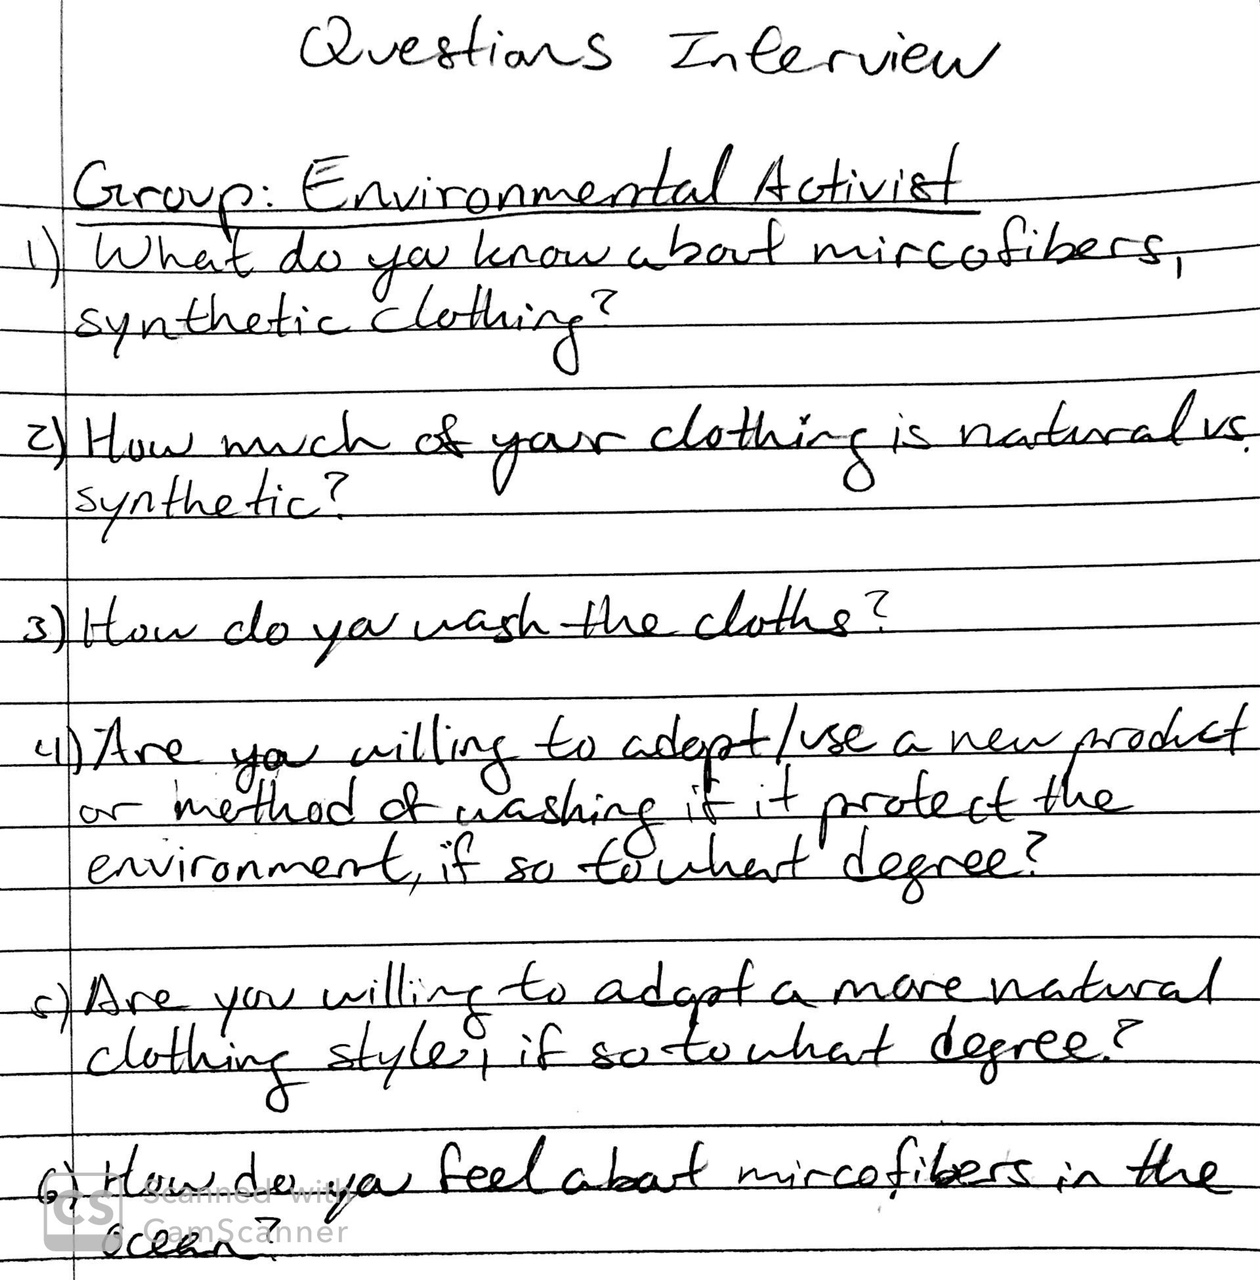 Questions Interview
Group: Environmental Activist
1) What do you know about mircofibers,
synthetic clothing?
2) How much of your clothing is natural vs.
synthetic?
3) How do you wash the cloths?
4) Are you willing to adept/use a new product
or method of washing if it protect the
environment, if so to what degree?
5) Are you willing to adapt a more natural
clothing style, if so to what degree?
6) How do you feel about mircofibers in the
ocean?
CS Scanned with
CamScanner